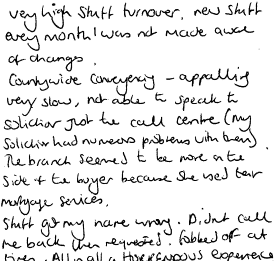 very high staff turnover, new staff
every month I was not made aware
of changes.
Countrywide Conveyancy - appalling
very slow, not able to speak to
solicitor just the call centre (my
solicitor had numerous problems with them)
The branch seemed to be more on the
side of the buyer because she used their
mortgage services.
Staff got my name wrong. Didnt call
me back when requested. fobbed off at
times. All in all a HORRENDOUS experience